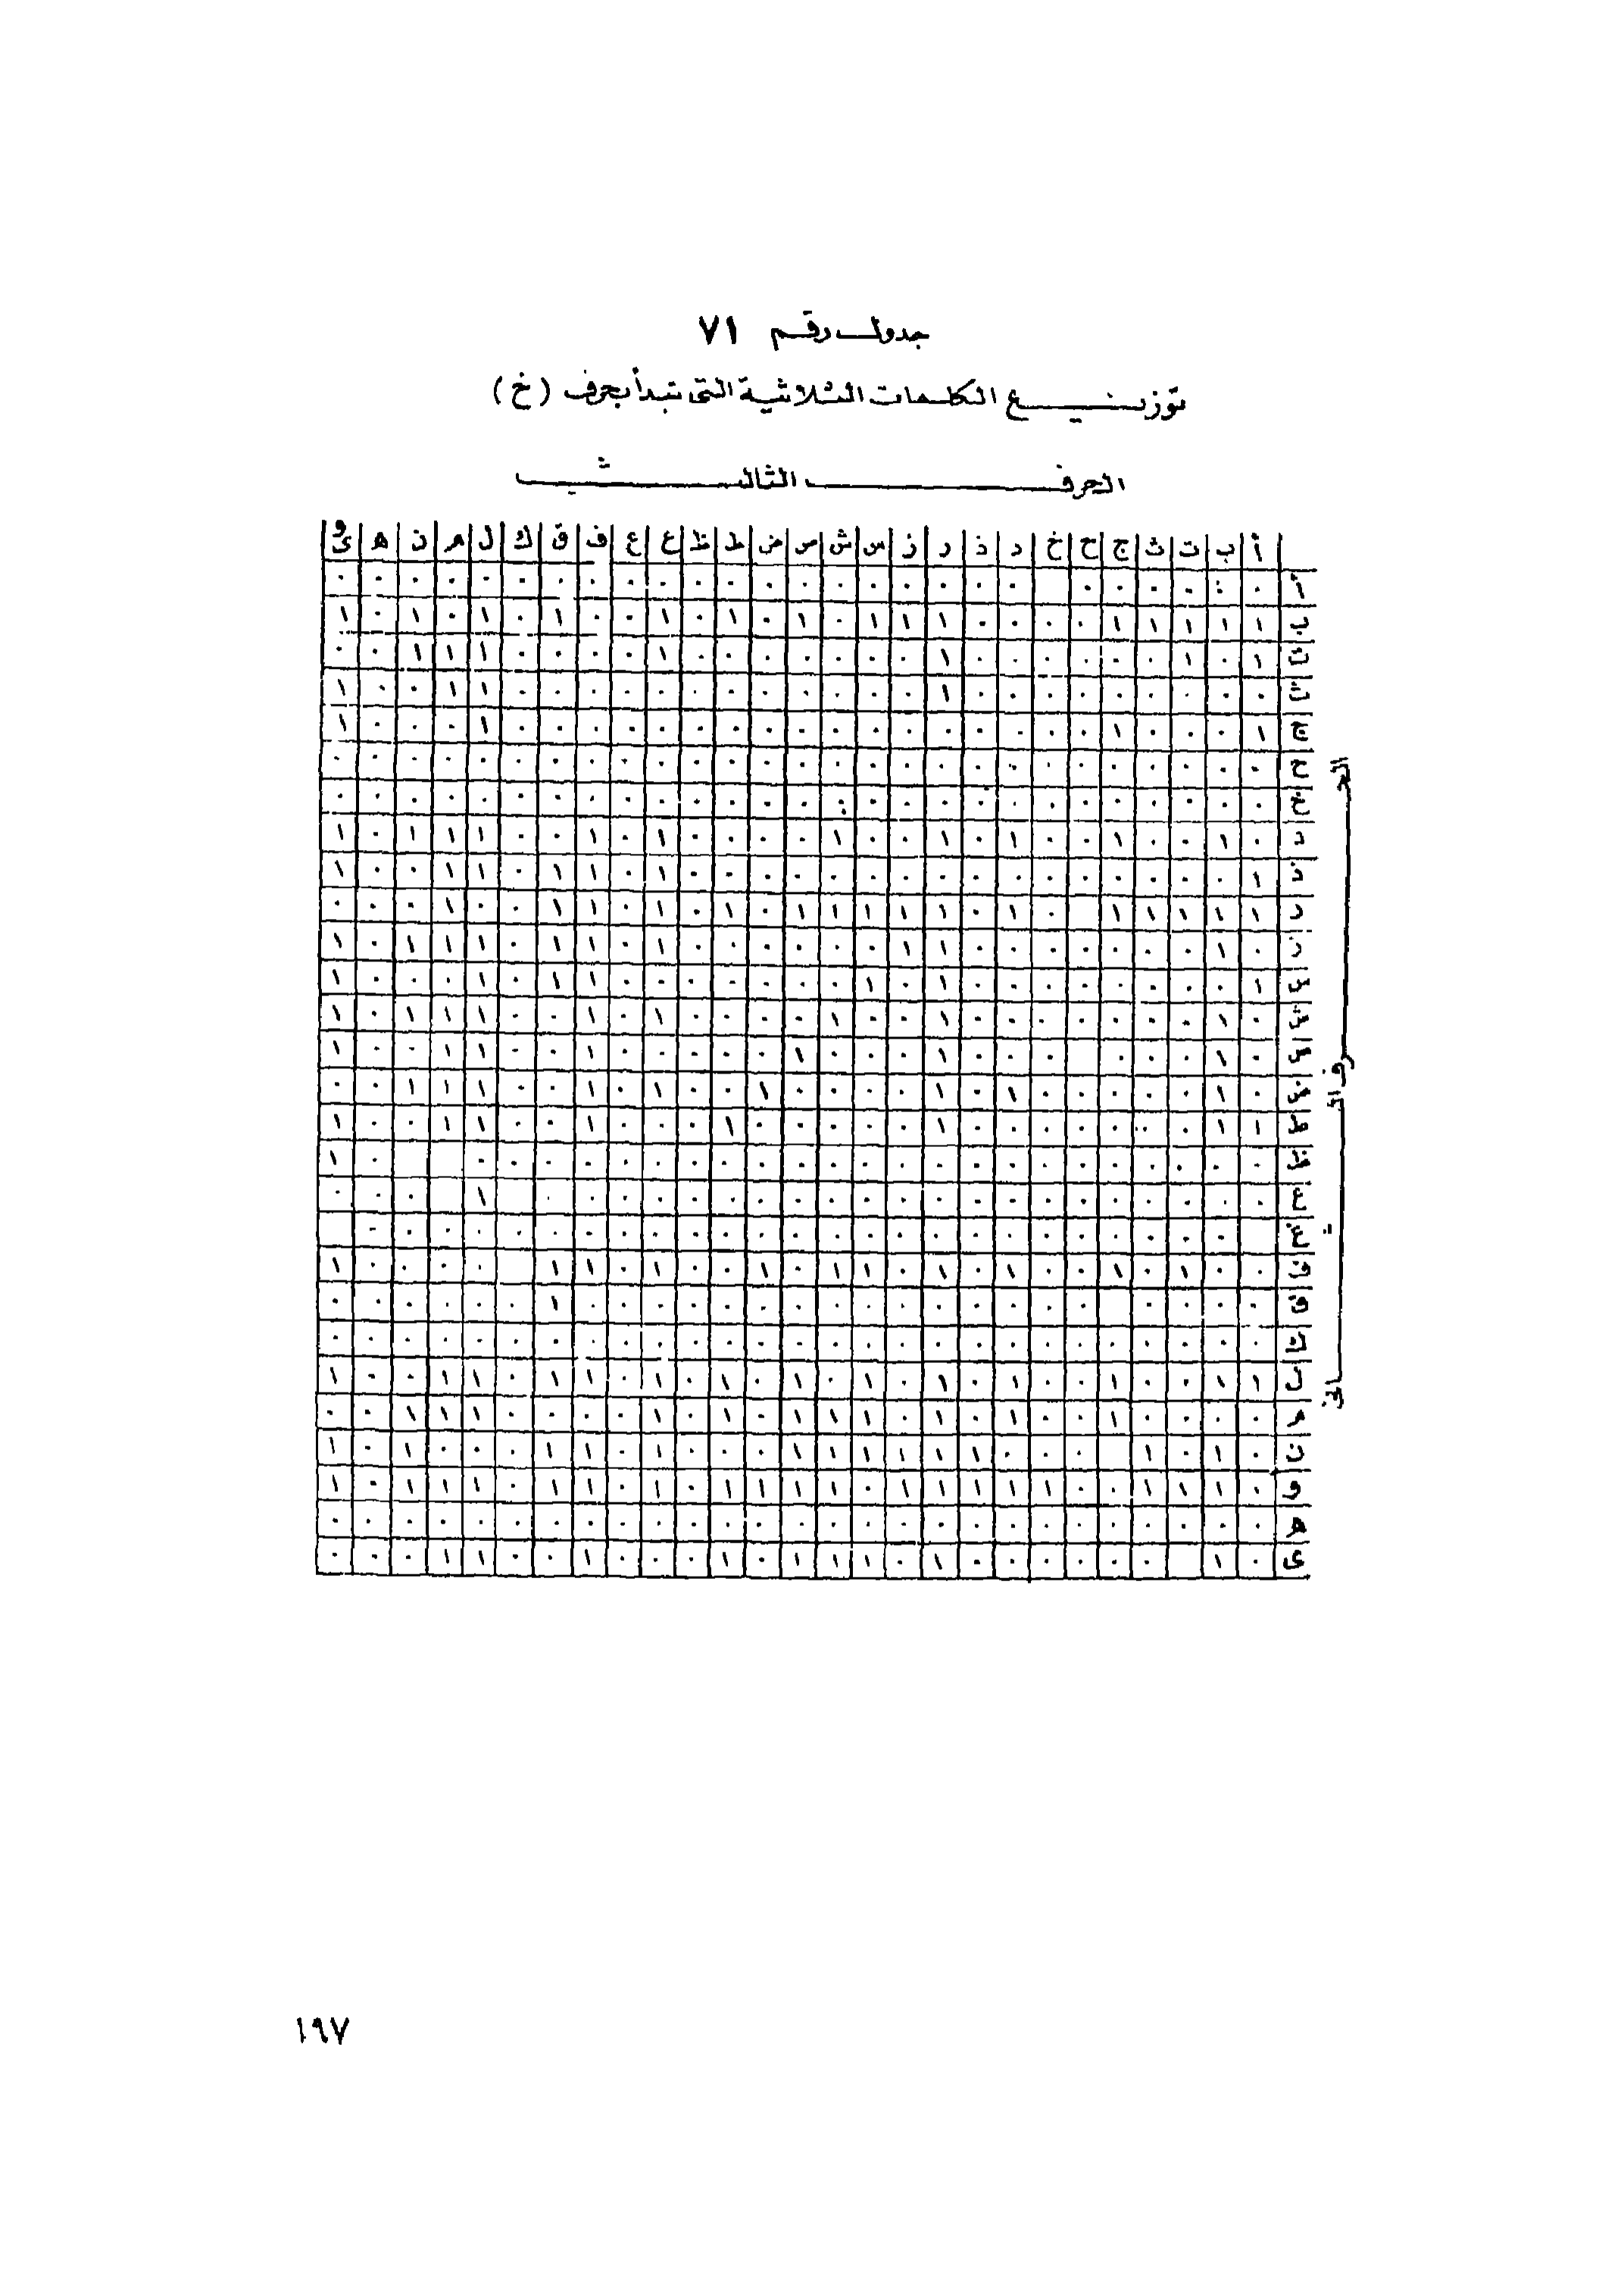 جدول رقم ٧١
توزيع الكلمات الثلاثية التى تبدأ بحرف (خ)
الحرف الثالث
أ ب ت ث ج ح خ د ذ ر ز س ش ص ض ط ظ ع غ ف ق ك ل م ن ه و ى
الحرف الثانى
أ ٠ ٠ ٠ ٠ ٠ ٠ ٠ ٠ ٠ ٠ ٠ ٠ ٠ ٠ ٠ ٠ ٠ ٠ ٠ ٠ ٠ ٠ ٠ ٠ ٠ ٠
ب ١ ١ ١ ١ ١ ٠ ٠ ٠ ٠ ١ ١ ١ ٠ ١ ٠ ١ ٠ ١ ٠ ٠ ١ ٠ ١ ٠ ١ ٠ ١
ت ١ ٠ ١ ٠ ٠ ٠ ٠ ٠ ٠ ١ ٠ ٠ ٠ ٠ ٠ ٠ ٠ ١ ٠ ٠ ٠ ٠ ١ ١ ١ ٠ ٠
ث ٠ ٠ ٠ ٠ ٠ ٠ ٠ ٠ ٠ ١ ٠ ٠ ٠ ٠ ٠ ٠ ٠ ٠ ٠ ٠ ٠ ٠ ١ ١ ٠ ٠ ١
ج ١ ٠ ٠ ٠ ١ ٠ ٠ ٠ ٠ ٠ ٠ ٠ ٠ ٠ ٠ ٠ ٠ ٠ ٠ ٠ ٠ ٠ ١ ٠ ٠ ٠ ١
ح ٠ ٠ ٠ ٠ ٠ ٠ ٠ ٠ ٠ ٠ ٠ ٠ ٠ ٠ ٠ ٠ ٠ ٠ ٠ ٠ ٠ ٠ ٠ ٠ ٠ ٠ ٠
خ ٠ ٠ ٠ ٠ ٠ ٠ ٠ ٠ ٠ ٠ ٠ ٠ ٠ ٠ ٠ ٠ ٠ ٠ ٠ ٠ ٠ ٠ ٠ ٠ ٠ ٠ ٠
د ٠ ١ ٠ ٠ ١ ٠ ٠ ١ ٠ ١ ٠ ٠ ١ ٠ ٠ ٠ ٠ ١ ٠ ١ ٠ ٠ ١ ١ ١ ٠ ١
ذ ١ ٠ ٠ ٠ ٠ ٠ ٠ ٠ ٠ ٠ ٠ ٠ ٠ ٠ ٠ ٠ ٠ ١ ٠ ١ ١ ٠ ١ ١ ٠ ٠ ١
ر ١ ١ ١ ١ ١ ٠ ١ ٠ ١ ١ ١ ١ ١ ٠ ١ ٠ ١ ٠ ١ ١ ٠ ٠ ١ ٠ ٠ ٠
ز ٠ ١ ٠ ٠ ٠ ٠ ٠ ٠ ٠ ١ ١ ٠ ٠ ٠ ٠ ٠ ٠ ١ ٠ ١ ١ ٠ ١ ١ ١ ٠ ١
س ١ ٠ ٠ ٠ ٠ ٠ ٠ ٠ ٠ ١ ٠ ١ ٠ ٠ ٠ ٠ ٠ ٠ ٠ ١ ١ ٠ ١ ٠ ٠ ٠ ١
ش ٠ ١ ٠ ٠ ٠ ٠ ٠ ٠ ٠ ١ ٠ ٠ ١ ٠ ٠ ٠ ٠ ١ ٠ ١ ٠ ٠ ١ ١ ١ ٠ ١
ص ٠ ١ ٠ ٠ ٠ ٠ ٠ ٠ ١ ٠ ٠ ٠ ١ ٠ ٠ ٠ ٠ ٠ ١ ٠ ٠ ١ ١ ٠ ٠ ١
ض ٠ ١ ٠ ٠ ٠ ٠ ٠ ١ ٠ ١ ٠ ٠ ٠ ٠ ١ ٠ ٠ ١ ٠ ١ ٠ ٠ ١ ١ ١ ٠ ٠
ط ١ ١ ٠ ٠ ٠ ٠ ٠ ٠ ٠ ١ ٠ ٠ ٠ ٠ ٠ ١ ٠ ٠ ٠ ١ ٠ ٠ ١ ١ ٠ ٠ ١
ظ ٠ ٠ ٠ ٠ ٠ ٠ ٠ ٠ ٠ ٠ ٠ ٠ ٠ ٠ ٠ ٠ ٠ ٠ ٠ ٠ ٠ ٠ ٠ ٠ ١
ع ٠ ٠ ٠ ٠ ٠ ٠ ٠ ٠ ٠ ٠ ٠ ٠ ٠ ٠ ٠ ٠ ٠ ٠ ٠ ٠ ٠ ١ ٠ ٠ ٠
غ ٠ ٠ ٠ ٠ ٠ ٠ ٠ ٠ ٠ ٠ ٠ ٠ ٠ ٠ ٠ ٠ ٠ ٠ ٠ ٠ ٠ ٠ ٠ ٠ ٠
ف ٠ ٠ ١ ٠ ١ ٠ ٠ ١ ٠ ١ ٠ ١ ١ ٠ ١ ٠ ٠ ١ ٠ ١ ١ ٠ ٠ ٠ ٠ ١
ق ٠ ٠ ٠ ٠ ٠ ٠ ٠ ٠ ٠ ٠ ٠ ٠ ٠ ٠ ٠ ٠ ٠ ٠ ٠ ١ ٠ ٠ ٠ ٠ ٠ ٠
ك ٠ ٠ ٠ ٠ ٠ ٠ ٠ ٠ ٠ ٠ ٠ ٠ ٠ ٠ ٠ ٠ ٠ ٠ ٠ ٠ ٠ ٠ ٠ ٠ ٠ ٠ ٠
ل ١ ١ ٠ ٠ ١ ٠ ٠ ١ ٠ ١ ٠ ١ ٠ ١ ٠ ١ ٠ ١ ٠ ١ ١ ٠ ١ ١ ٠ ٠ ١
م ٠ ٠ ٠ ٠ ١ ٠ ٠ ١ ٠ ١ ٠ ١ ١ ١ ٠ ١ ٠ ١ ٠ ٠ ٠ ٠ ١ ١ ١ ٠ ٠
ن ٠ ١ ٠ ١ ٠ ٠ ٠ ٠ ١ ١ ١ ١ ١ ١ ٠ ٠ ٠ ١ ٠ ١ ١ ٠ ٠ ٠ ١ ٠ ١
و ٠ ١ ١ ١ ٠ ٠ ١ ١ ١ ١ ١ ٠ ١ ١ ١ ١ ٠ ١ ٠ ١ ١ ٠ ١ ١ ١ ٠ ١
ه ٠ ٠ ٠ ٠ ٠ ٠ ٠ ٠ ٠ ٠ ٠ ٠ ٠ ٠ ٠ ٠ ٠ ٠ ٠ ٠ ٠ ٠ ٠ ٠ ٠ ٠ ٠
ى ٠ ١ ٠ ٠ ٠ ٠ ٠ ٠ ١ ٠ ١ ١ ١ ٠ ١ ٠ ٠ ٠ ١ ٠ ٠ ١ ١ ٠ ٠ ٠
١٩٧